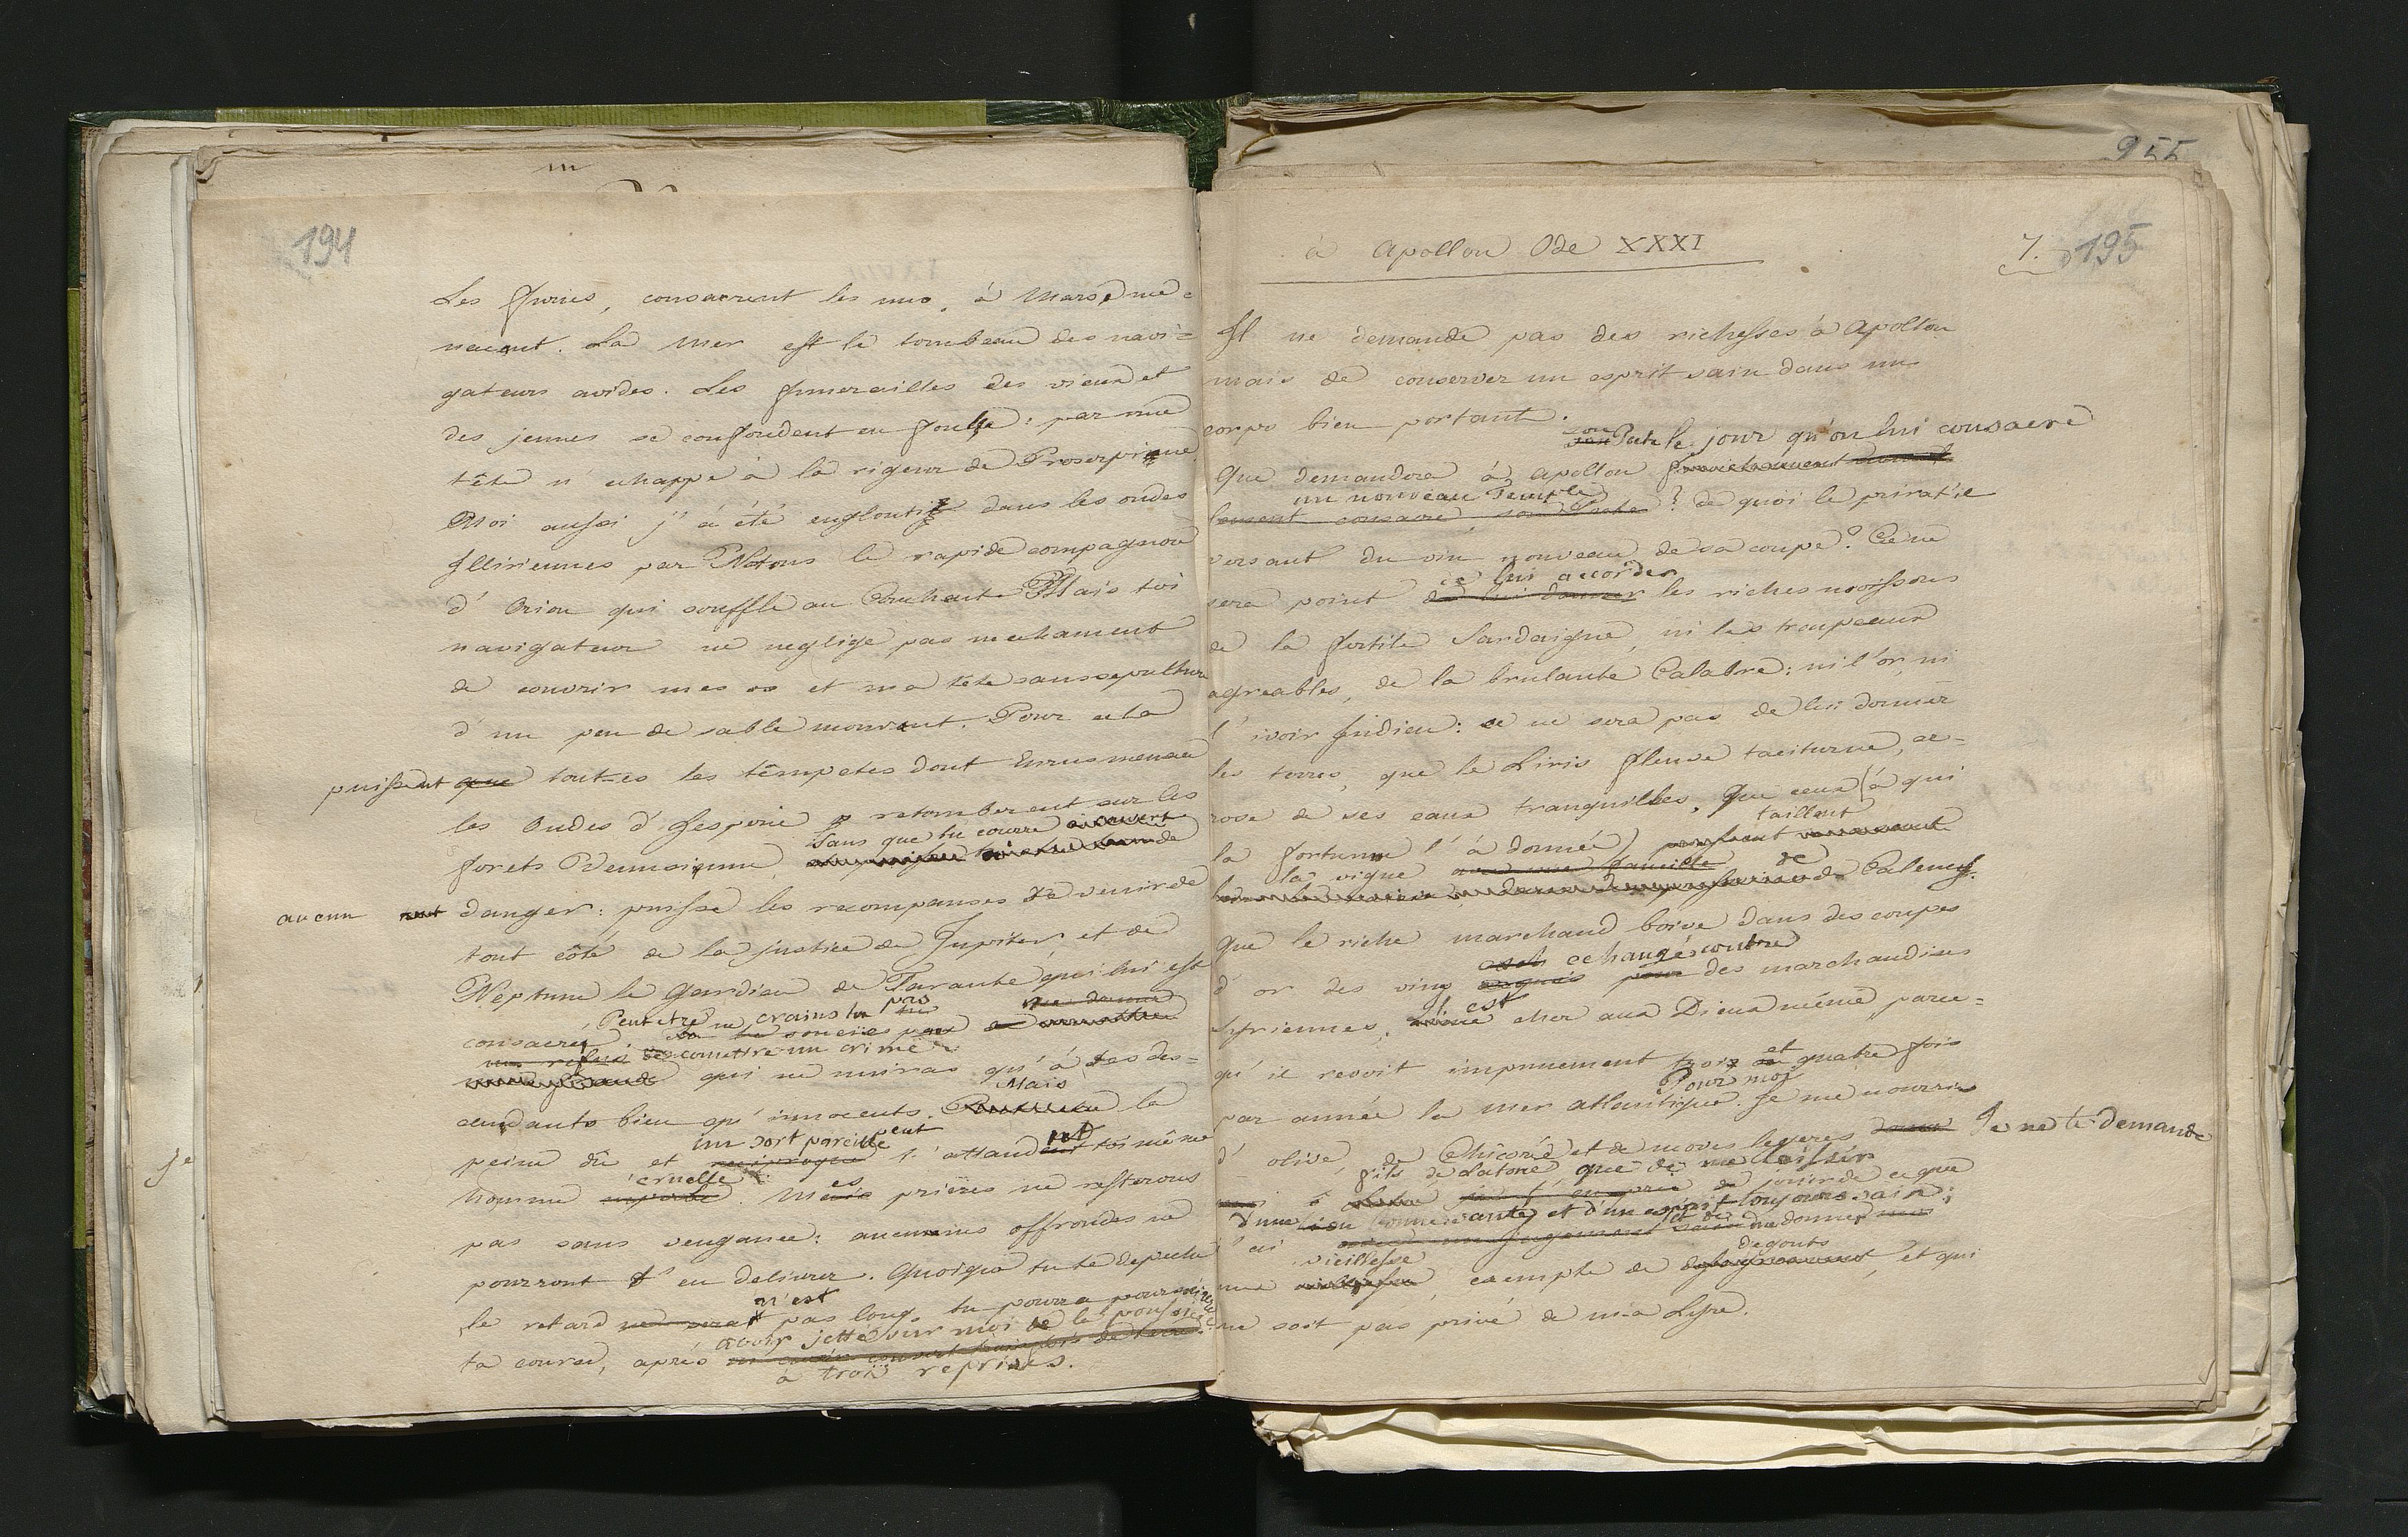 194
Les furies, consacrent les uns, à Mars, me=
nacant. La mer est le tombeau des navi=
gateurs avides. Les funerailles des vieux et
des jeunes se confondent en foulle : par une
tête n'echappe à la rigeur de Proserpine
Moi aussi j'a été englouti dans les ondes
Illiriennes par Notous le rapide compagnon
d'Orion qui souffle au Couchant. Mais toi
navigateur ne neglige pas mechament
de couvrir mes os et ma tête sans sepulture
d'un peu de sable mouvant. Pour cela
puissent que toutes les tempetes dont Eurus menace
les Ondes d'Hesperie retomberent sur les
Sans que tu courre
forets Venusienne,
aucun danger : puisse les recompanses te venir de
tout côté de la justice de Jupiter, et de
Neptune le gardien de Tarante qui lui est
Peut etre ne crains tu pas
consacré,
de comettre un crime
qui ne nuiras qu'à tes des=
Mais
cendants bien qu'innocents. la
un sort pareille peut
peine du et reciproque t'attend toi même
cruelle
homme superbe. Mes prières ne resterons
pas sans vengance : aucunes offrondes ne
pourront t'en delivrer. Quoique tu te depeche
n'est
le retard ne sera pas long, tu pourra poursuivre
avoir jetté sur moi de la poussière
ta course, après
à trois reprises.
je
955
à Apollon Ode XXXI
7. 195
Il ne demande pas des richesses à Apollon
mais de conserver un esprit sain dans un
corps bien portant.
son Poete le jour qu'on lui consacre
Que demandera à Apollon
un nouveau Temple
? de quoi le prirat'il
versant du vin nouveau de sa coupe? Ce ne
de lui accorder
sera point de lui donner les riches moissons
de la fertile Sardaigne, ni les troupeaux
agreables, de la brulante Calabre : ni l'or, ni
l'ivoir Indien : ce ne sera pas de lui donner
les terres, que le Liris fleuve taciturne, ar=
rose de ses eaux tranquilles, Que ceux (à qui
taillent
la fortunne l'à donnée)
la vigne avec une faucille de
Calenes.
Que le riche marchand boive dans des coupes
echangés contre
d'or des vins acquis pour des marchandises
il est
Syriennes, cher aux Dieux même parce=
et
qu'il revoit impunement trois quatre fois
Pour moi
par année la mer Atlantique. Je me nourris
d'olive, de Chicoré et de moves legeres Je ne te demande
fils de Latone que de me laisser
jouir de ce que
d'une bonne santé, et d'un esprit toujours sain;
j'ai me donner
vieillesse degouts
une exempte de, et qui
ne soit pas privé de ma Lyre.